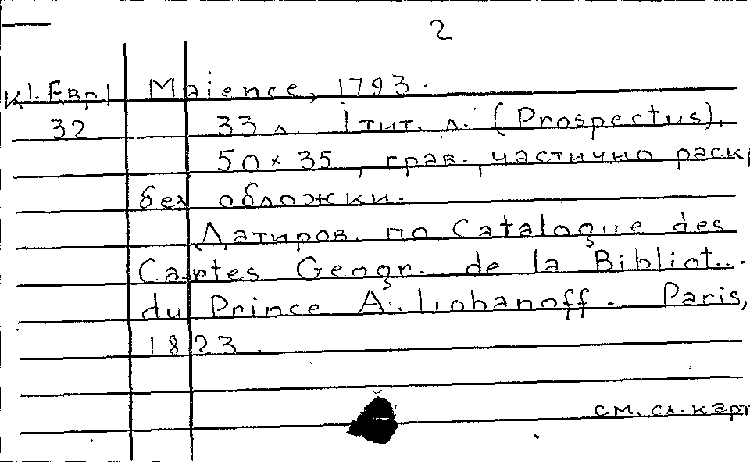 2
К1.Евр1 Maience, 1793.
32 33 л. 1тит. л. (Prospectus),
50×35, грав., частично раскр
без обложки.
Датиров. по Catalogue des
Cartes Geogr. de la Bibliot...
du Prince A. Lobanoff. Paris,
1823.
см. сл. карт